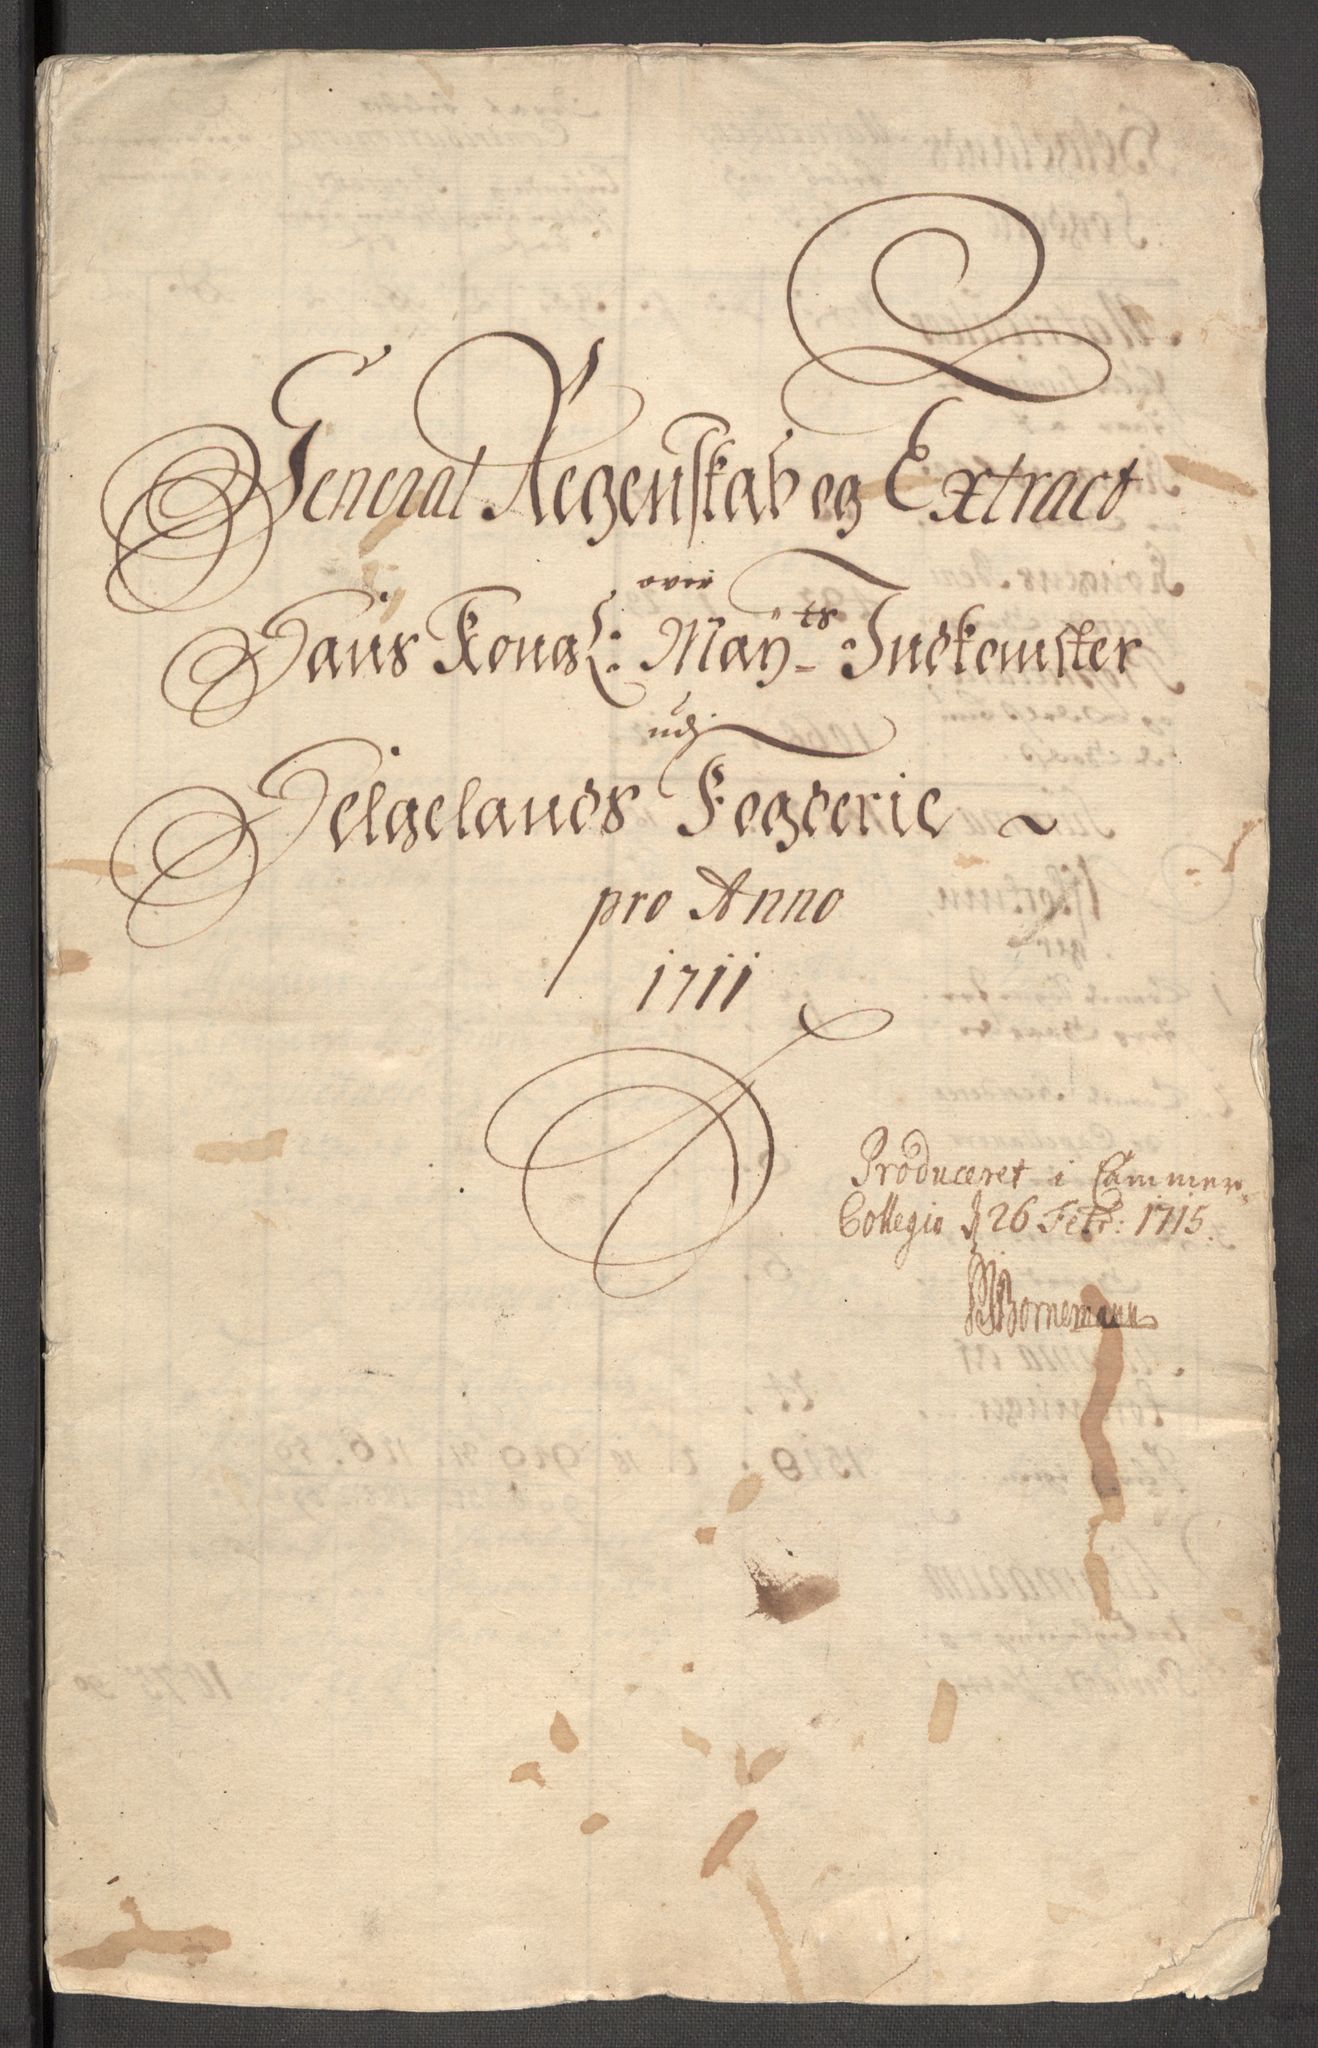 General Regenskab og Extract
over
Hans Kongl: Mayts Indkomster
udj
Helgelands Fogderie
pro Anno
1711
Produceret i Cammer-
Collegio d 26 Febr: 1715.
Bornemann